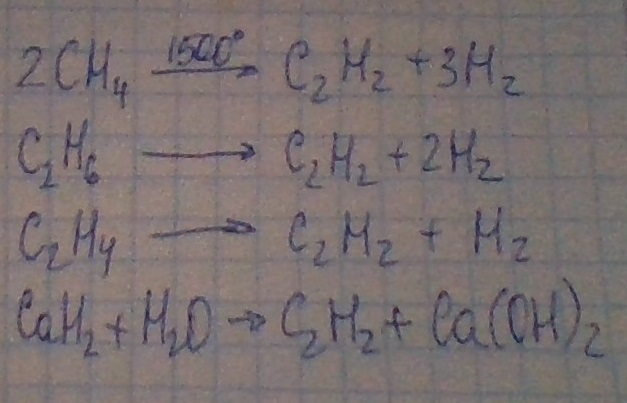 2CH₄ —1500°→ C₂H₂ + 3H₂
C₂H₆ → C₂H₂ + 2H₂
C₂H₄ → C₂H₂ + H₂
CaH₂ + H₂O → C₂H₂ + Ca(OH)₂